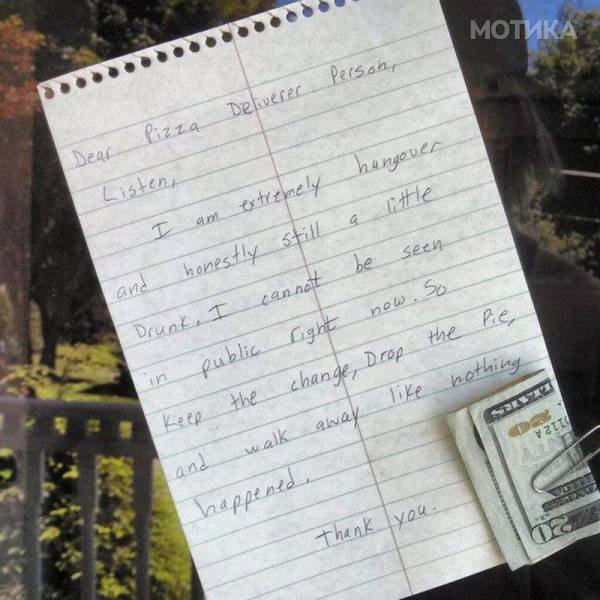 МОТИКА
Dear Pizza Deliverer Person,
Listen,
I am extremely hangover
and honestly still a little
Drunk. I cannot be seen
in public right now. So
Keep the change, Drop the Pie,
and walk away like nothing
happened.
Thank you.
20
20